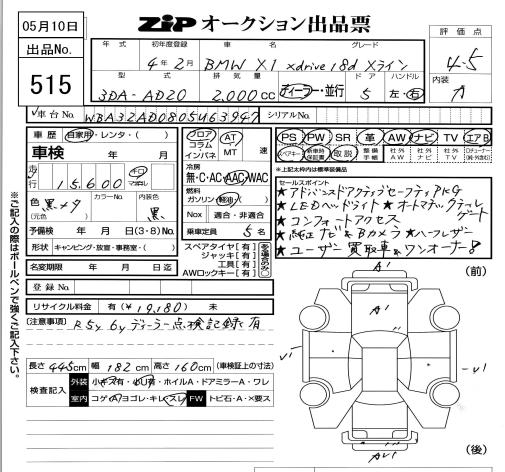 05月10日
ZIP オークション出品票
評価点
4.5
内装
A
出品No.
515
年式 初年度登録 車名 グレード
4年2月 BMW X1 xdrive18d Xライン
型式 排気量 ドア ハンドル
3DA-AD20 2,000cc ディーラー・並行 5 左・右
車台No. WBA32AD0805U63947 シリアルNo.
車歴 自家用・レンタ・( )
フロア コラム インパネ
AT MT 速
PS PW SR 革 AW ナビ TV エアB
スペアキー 新車時保証書 取説 整備手帳 社外AW 社外ナビ 社外TV
車検 年 月
※上記太枠内は標準装備品
走行 15,600 キロ マイル
冷房
無・C・AC AAC WAC
燃料
ガソリン 軽油
セールスポイント
★アドバンスドアクティブセーフティPKG
★LEDヘッドライト ★オートマチックテールゲート
★コンフォートアクセス
★純正ナビ&Bカメラ ★ハーフレザー
★ユーザー買取車&ワンオーナー8
色 黒メタ (元色) カラーNo. 内装色 黒
Nox 適合・非適合
予備検 年 月 日(3・8)No.
乗車定員 5名
形状 キャンピング・放宣・事務室・( )
スペアタイヤ[有]
ジャッキ[有]
工具[有]
AWロックキー[有]
名変期限 年 月 日迄
(前)
登録No.
リサイクル料金 有(¥19,180) 未
(注意事項) R5y 6y ディーラー点検記録有
長さ 445cm 幅 182cm 高さ 160cm (車検証上の寸法)
検査記入 外装 小キズ有・小凹有・ホイルA・ドアミラーA・ワレ
室内 コゲA ヨゴレ・キレ・スレ FW トビ石・A・×要ス
A1
A1
v1
v1
Av1
(後)
※ご記入の際はボールペンで強くご記入下さい。